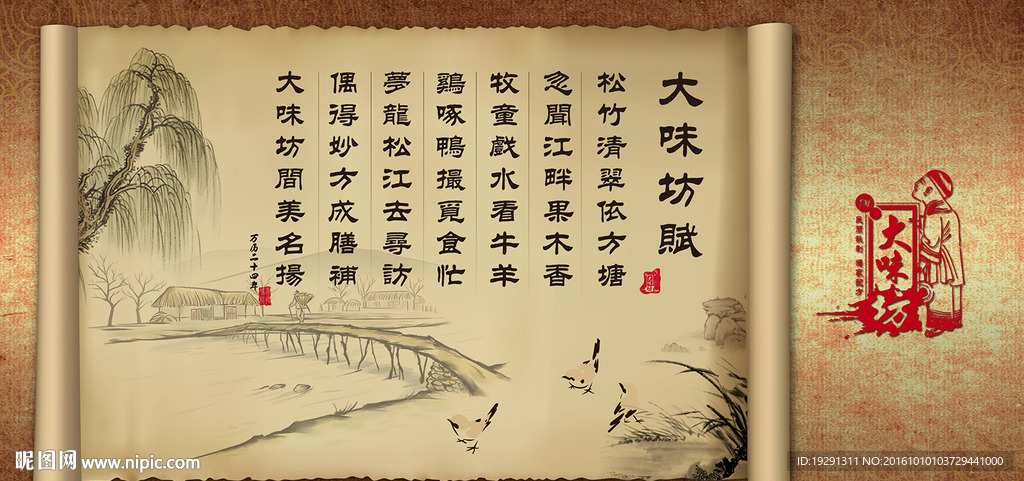 大味坊賦
松竹清翠依方塘
忽聞江畔果木香
牧童戲水看牛羊
鷄啄鴨撮覓食忙
夢龍松江去尋訪
偶得妙方成膳補
大味坊間美名揚
万历二十四年
大味坊
昵图网 www.nipic.com
ID:19291311 NO:20161010103729441000